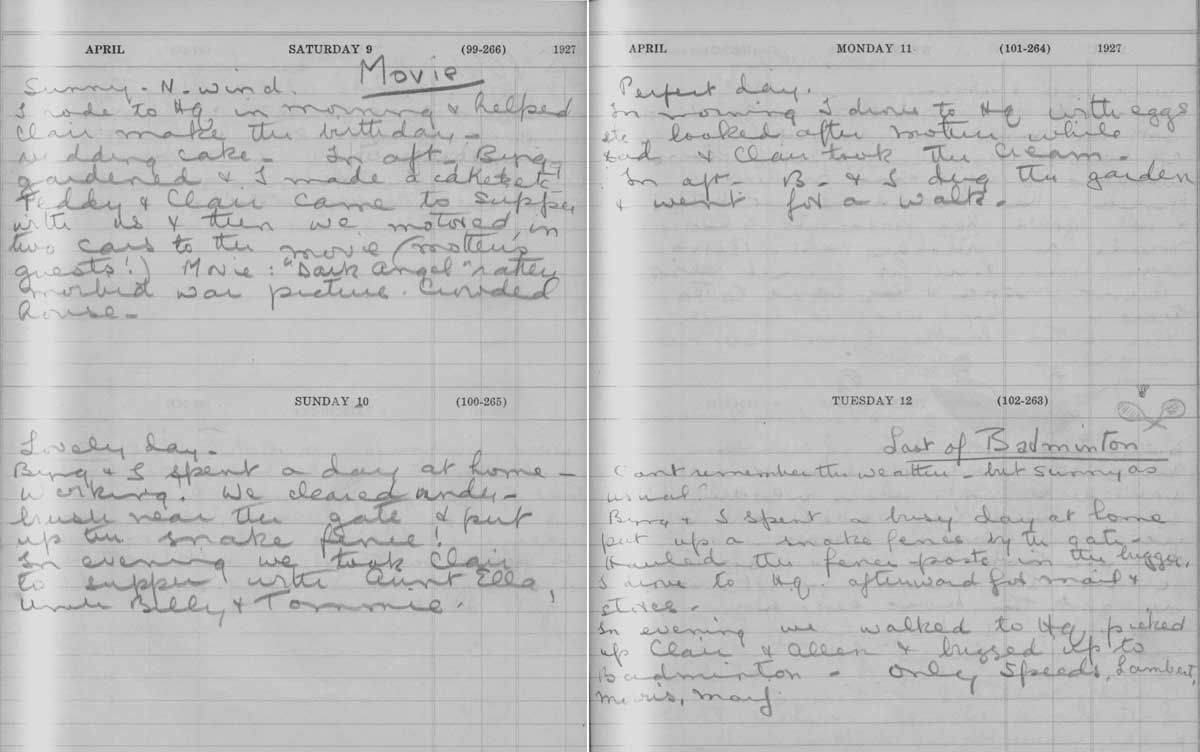 APRIL SATURDAY 9 (99-266) 1927
Movie
Sunny - N. wind.
I rode to Hq. in morning & helped
Clair make the birthday -
wedding cake - In aft. Bing
gardened & I made a cakelet
Teddy & Clair came to supper
with us & then we motored, in
two cars to the movie (mother's
guests!) Movie: "Dark Angel" rather
morbid war picture. Crowded
house -
SUNDAY 10 (100-265)
Lovely day -
Bing & I spent a day at home -
working. We cleared under-
brush near the gate & put
up the snake fence!
In evening we took Clair
to supper with Aunt Ella,
Uncle Billy & Tommie.
APRIL MONDAY 11 (101-264) 1927
Perfect day.
In morning I drove to Hq with eggs
etc looked after mother while
Dad & Clair took the cream -
In aft - B - & I dug the garden
& went for a walk -
TUESDAY 12 (102-263)
Last of Badminton
Can't remember the weather - but sunny as
usual
Bing & I spent a busy day at home
put up a snake fence by the gate -
Hauled the fence posts in the bugger,
I drove to Hq. afterward for mail &
stores -
In evening we walked to Hq, picked
up Clair & Allen & bugged up to
Badminton - only Speeds, Lambert,